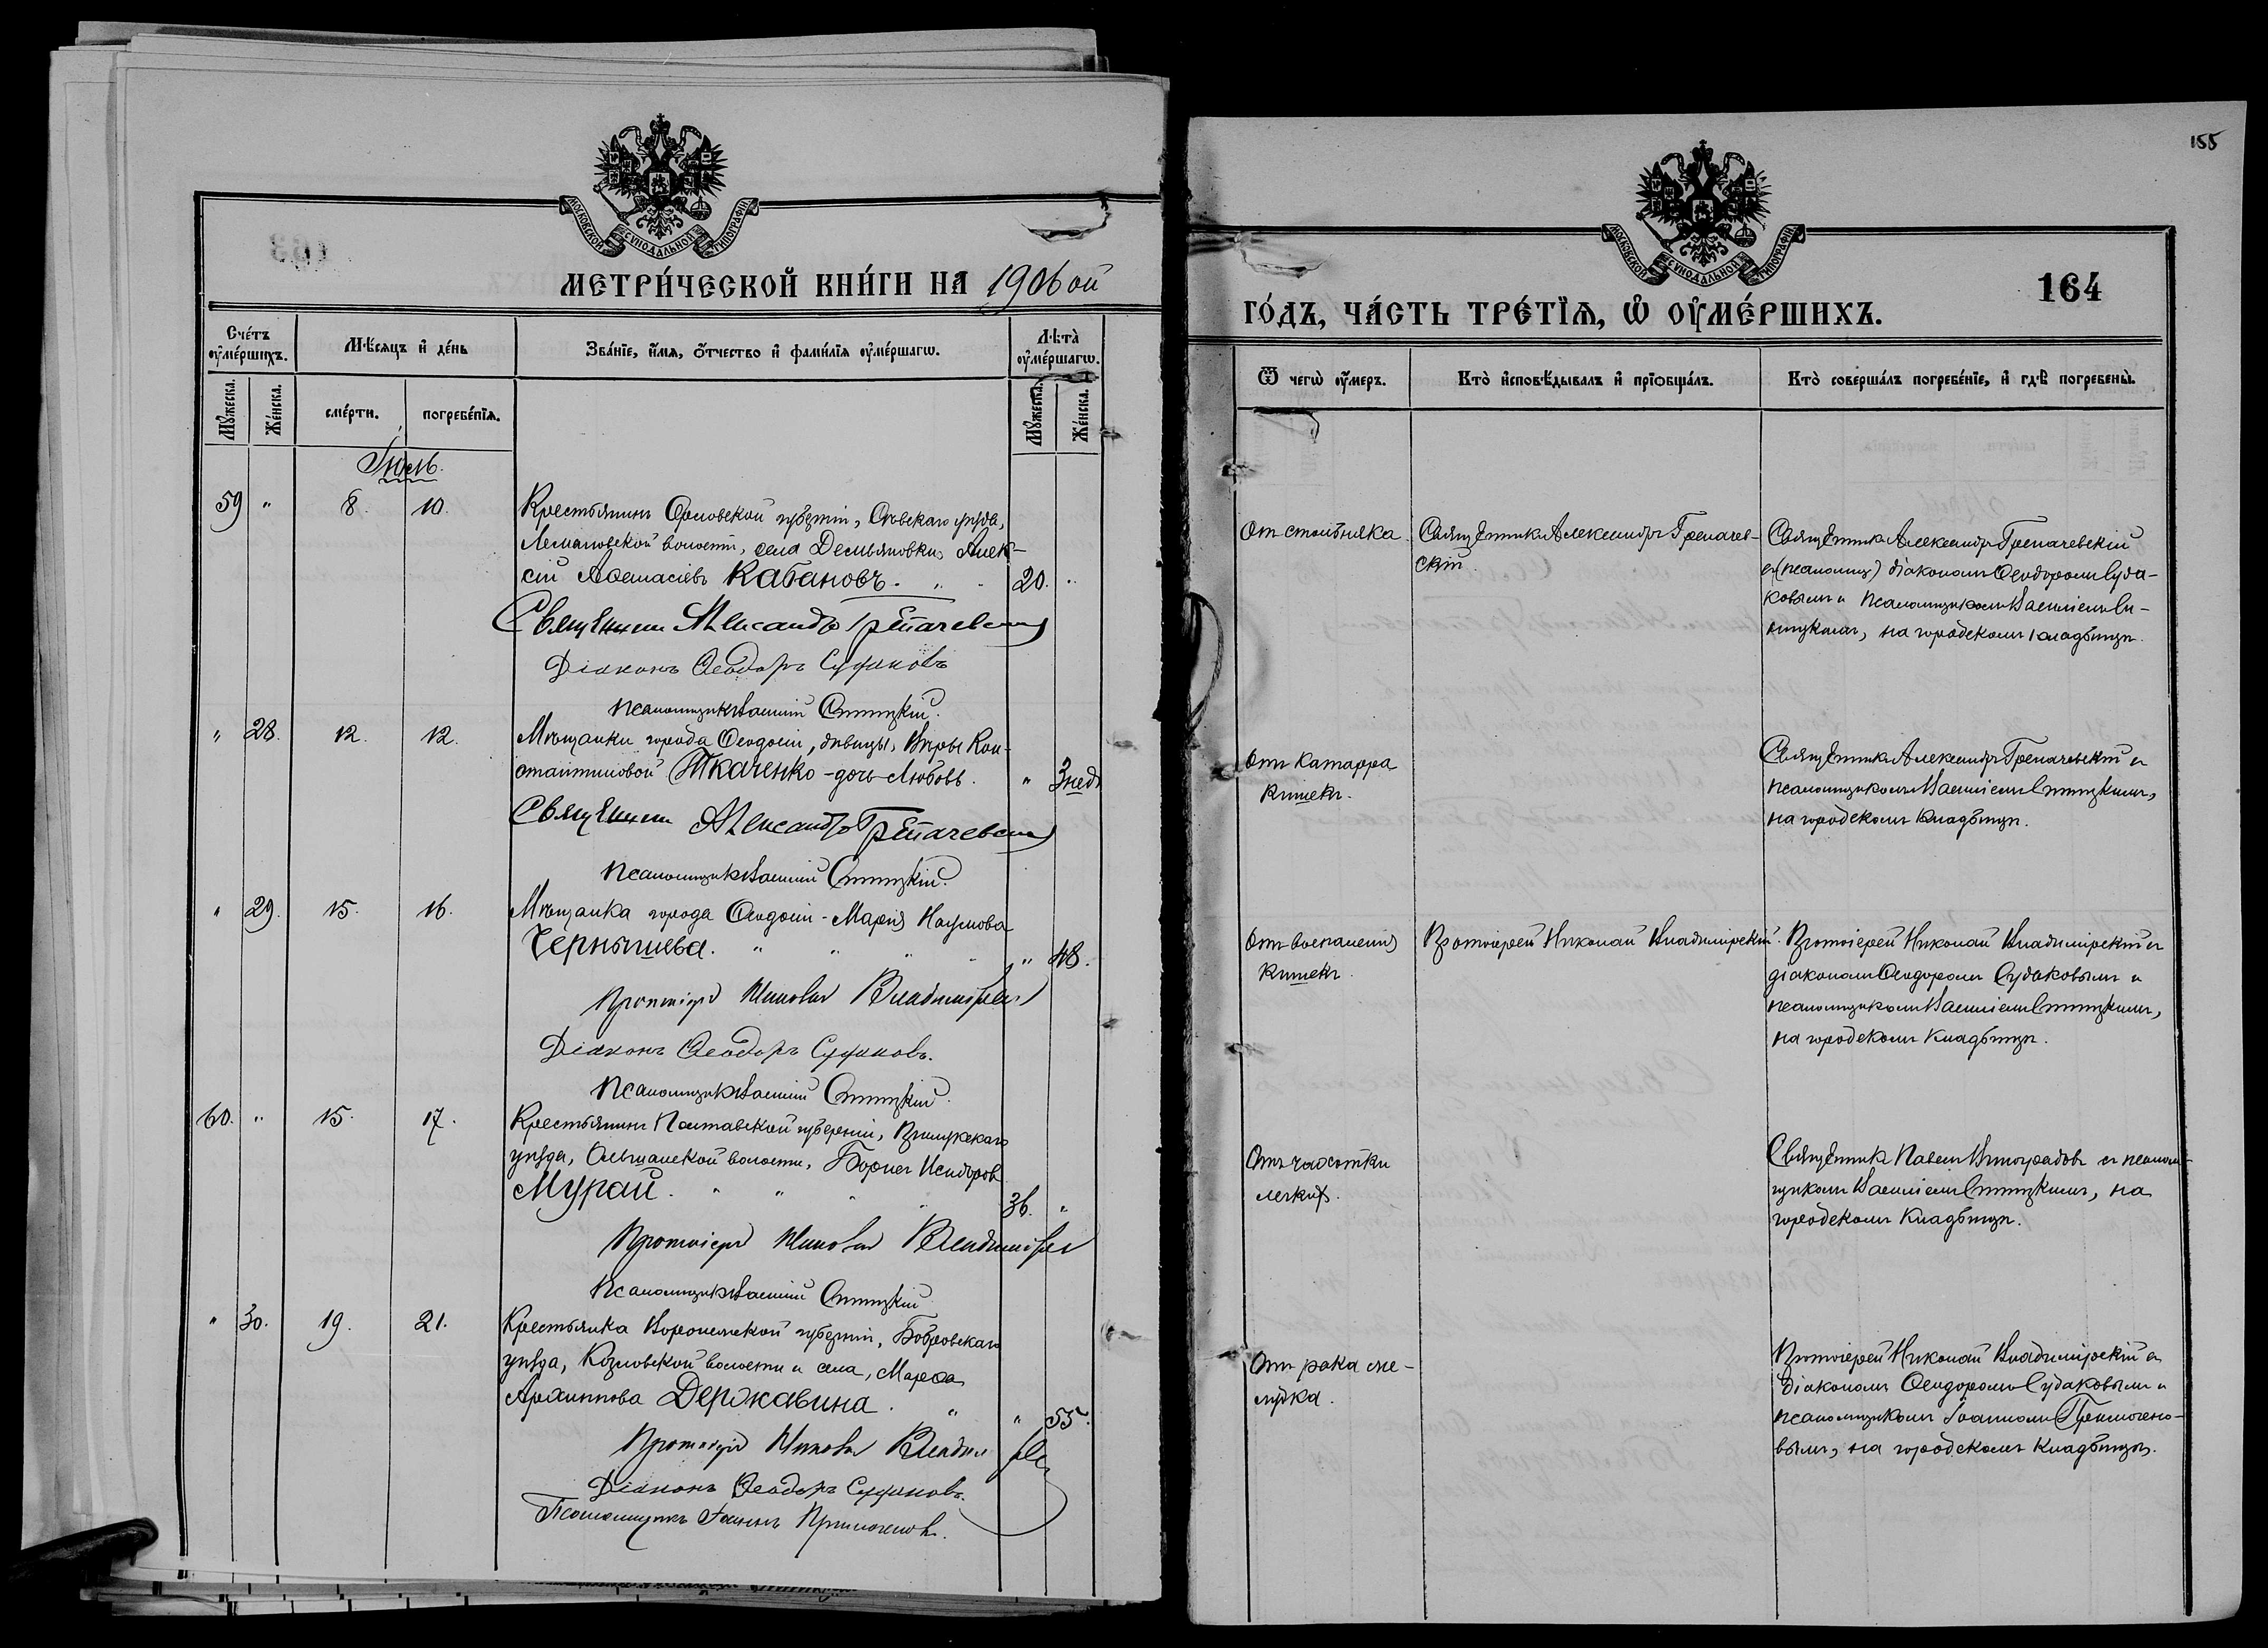 МОСКОВСКОЙ СУНОДАЛЬНОЙ ТИПОГРАФІИ
МЕТРИ́ЧЕСКОЙ КНИ́ГИ НА 1906 ой
Сче́тъ ѹ҆ме́ршихъ.
Мѣ́сяцъ и҆ де́нь
Зва́нїе, и҆́мя, ѻ҆́тчество и҆ фами́лїя ѹ҆ме́ршагѡ.
Лѣ́та ѹ҆ме́ршагѡ.
Мꙋ́жеска.
Же́нска.
сме́рти.
погребе́нїя.
Мꙋ́жеска.
Же́нска.
Іюль.
59 " 8. 10. Крестьянинъ Орловской губерніи, Сѣвскаго уѣзда,
волости, села Демьяновки, Алек-
сій Аѳанасіевъ Кабановъ. " 20. "
Священникъ Александръ Грепачевскій
Діаконъ Ѳеодоръ Судаковъ
Псаломщикъ Василій Синицкій.
" 28. 12. 12. Мѣщанки города Ѳеодосіи, дѣвицы, Вѣры Кон-
стантиновой Ткаченко - дочь Любовь. " 3 нед.
Священникъ Александръ Грепачевскій
Псаломщикъ Василій Синицкій.
" 29. 15. 16. Мѣщанка города Ѳеодосіи - Марія Наумова
Чернышева. " " " " 48.
Протоіерей Николай Владимірскій
Діаконъ Ѳеодоръ Судаковъ.
Псаломщикъ Василій Синицкій.
60. " 15. 17. Крестьянинъ Полтавской губерніи, Прилукскаго
уѣзда, Ольшанской волости, Борисъ Исидоровъ
Мурай. " " " 36. "
Протоіерей Николай Владимірскій
Псаломщикъ Василій Синицкій
" 30. 19. 21. Крестьянка Воронежской губерніи, Бобровскаго
уѣзда, Козловской волости и села, Марѳа
Архиппова Державина. " " 55.
Протоіерей Николай Владимірскій
Діаконъ Ѳеодоръ Судаковъ.
Псаломщикъ Іоаннъ
155
МОСКОВСКОЙ СУНОДАЛЬНОЙ ТИПОГРАФІИ
164
ГО́ДЪ, ЧА́СТЬ ТРЕ́ТЇЯ, Ѡ҆ ОУ҆МЕ́РШИХЪ.
Ѿ чегѡ̀ ѹ҆́меръ.
Кто̀ и҆сповѣ́дывалъ и҆ прїѡбща́лъ.
Кто̀ соверша́лъ погребе́нїе, и҆ гдѣ̀ погребены̀.
Отъ столбняка
Священникъ Александръ Грепачев-
скій.
Священникъ Александръ Грепачевскій
съ (псаломщ) діакономъ Ѳеодоромъ Суда-
ковымъ и псаломщикомъ Василіемъ Си-
ницкимъ, на городскомъ кладбищѣ.
Отъ катарра
кишекъ.
Священникъ Александръ Грепачевскій съ
псаломщикомъ Василіемъ Синицкимъ,
на городскомъ кладбищѣ.
Отъ воспаленія
кишекъ.
Протоіерей Николай Владимірскій.
Протоіерей Николай Владимірскій съ
діакономъ Ѳеодоромъ Судаковымъ и
псаломщикомъ Василіемъ Синицкимъ,
на городскомъ кладбищѣ.
Отъ чахотки
легкихъ.
Священникъ Павелъ Виноградовъ съ псалом-
щикомъ Василіемъ Синицкимъ, на
городскомъ кладбищѣ.
Отъ рака же-
лудка.
Протоіерей Николай Владимірскій съ
діакономъ Ѳеодоромъ Судаковымъ и
псаломщикомъ Іоанномъ
вымъ, на городскомъ кладбищѣ.